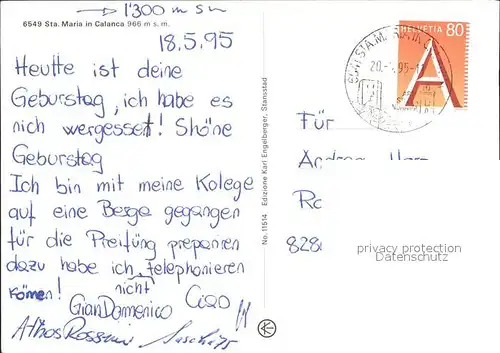 → 1'300 m s m
6549 Sta. Maria in Calanca 966 m s. m.
18.5.95
Heutte ist deine
Geburstag, ich habe es
nich vergesset! Shöne
Geburstag
Ich bin mit meine Kolege
auf eine Berge gegangen
für die Preifüng preparren
dazu habe ich nicht telephonieren
können!
GianDomenico Ciao
Athos Rossini
No. 11514 Edizione Karl Engelberger, Stansstad
HELVETIA 80
A
STA. M
20. 95-1
Für
Andrea
828
privacy protection
Datenschutz